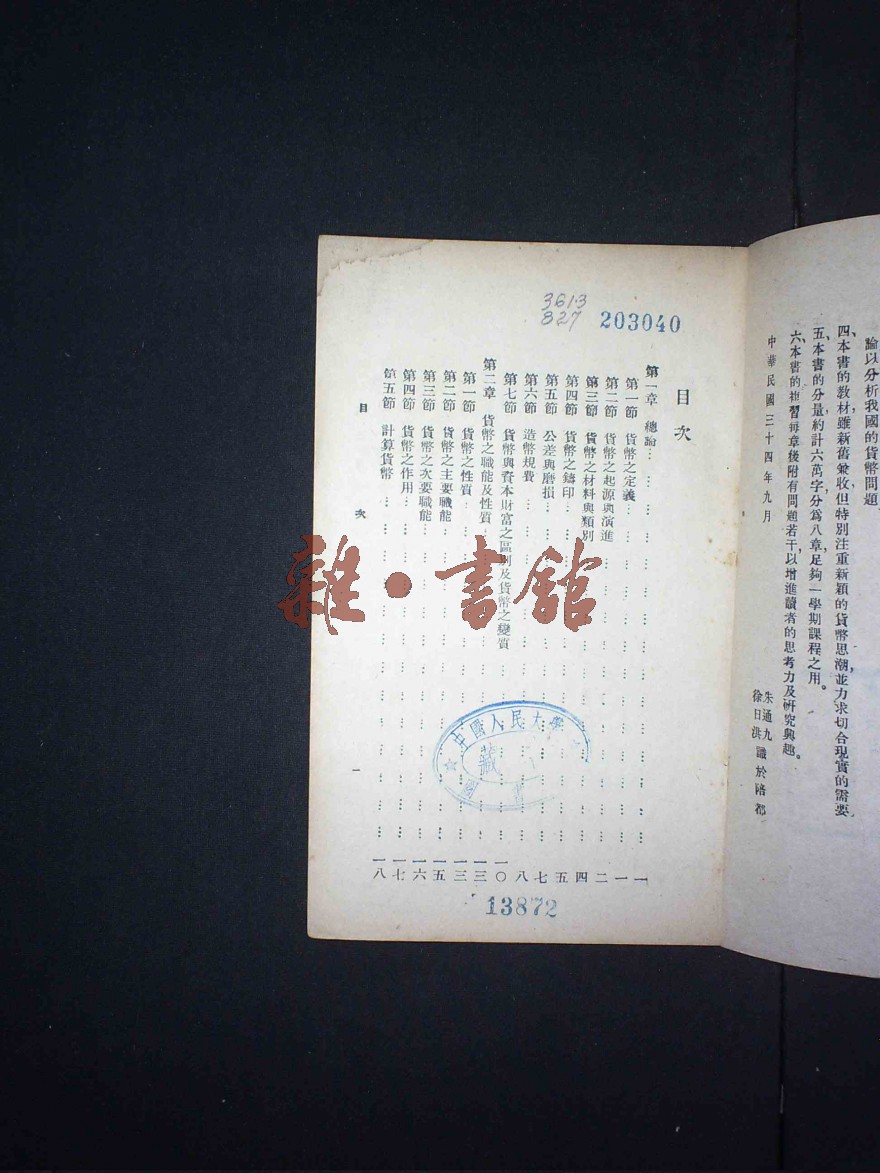 論以分析我國的貨幣問題
四、本書的敎材雖新舊兼收但特別注重新穎的貨幣思潮並力求切合現實的需要
五、本書的分量約計六萬字分爲八章足夠一學期課程之用。
六、本書的複習每章後附有問題若干以增進讀者的思考力及研究興趣。
中華民國三十四年九月
朱通九
徐日洪
識於陪都
3613
827
203040
目次
第一章 總論……一
第一節 貨幣之定義……一
第二節 貨幣之起源與演進……二
第三節 貨幣之材料與類別……四
第四節 貨幣之鑄印……五
第五節 公差與磨損……七
第六節 造幣規費……八
第七節 貨幣與資本財富之區別及貨幣之變質……一〇
第二章 貨幣之職能及性質……一三
第一節 貨幣之性質……一三
第二節 貨幣之主要職能……一五
第三節 貨幣之次要職能……一六
第四節 貨幣之作用……一七
第五節 計算貨幣……一八
目次
一
中國人民大學
藏
圖書
13872
雜·書館